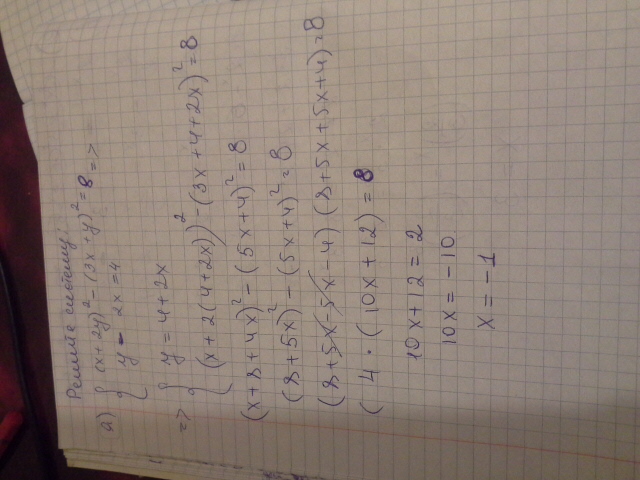 Решите систему:
а) { (x+2y)² - (3x+y)² = 8 =>
y - 2x = 4
=> { y = 4+2x
(x+2(4+2x))² - (3x+4+2x)² = 8
(x+8+4x)² - (5x+4)² = 8
(8+5x)² - (5x+4)² = 8
(8+5x-5x-4) (8+5x+5x+4) = 8
( 4 · ( 10x+12) = 8
10x+12 = 2
10x = -10
x = -1